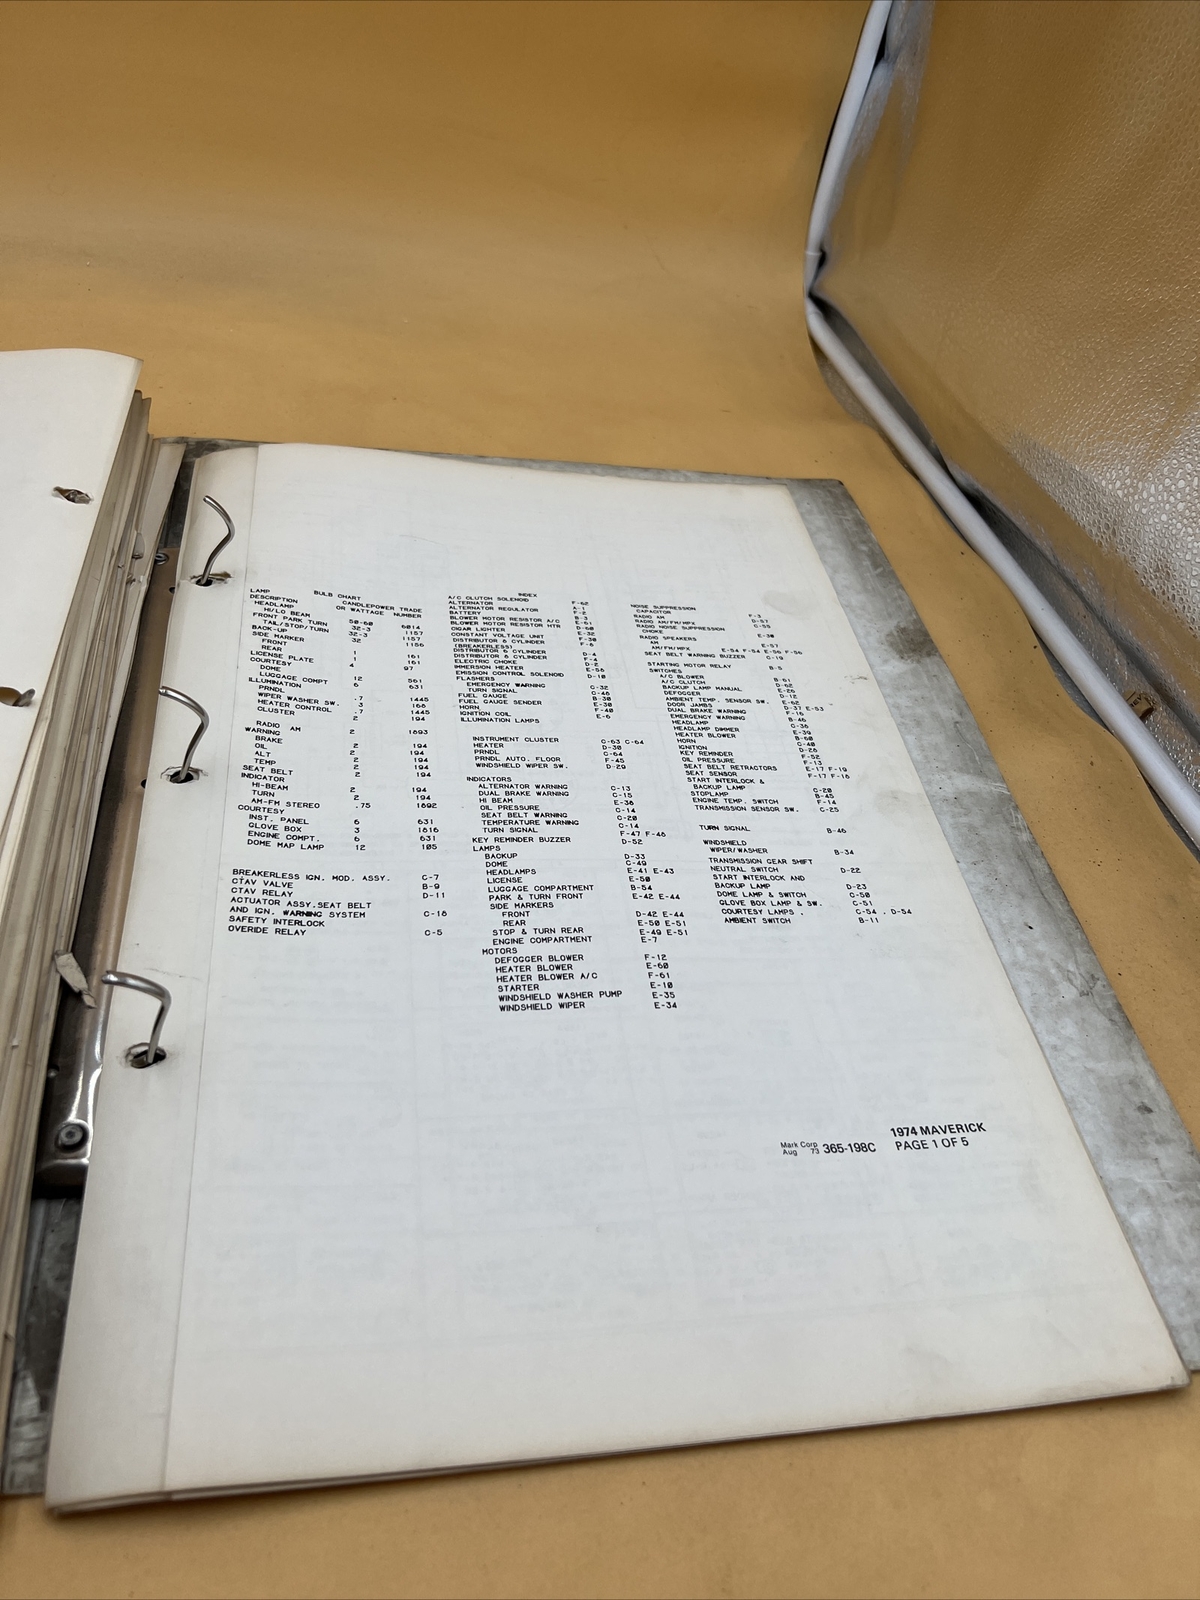 LAMP BULB CHART
DESCRIPTION CANDLEPOWER TRADE
HEADLAMP OR WATTAGE NUMBER
HI/LO BEAM 50-60 6014
FRONT PARK TURN 32-3 1157
TAIL/STOP/TURN 32-3 1157
BACK-UP 32 1156
SIDE MARKER
FRONT 1 161
REAR 1 161
LICENSE PLATE 4 97
COURTESY
DOME 12 561
LUGGAGE COMPT 6 631
ILLUMINATION
PRNDL .7 1445
WIPER WASHER SW. 3 168
HEATER CONTROL .7 1445
CLUSTER 2 194
RADIO AM 2 1893
WARNING
BRAKE 2 194
OIL 2 194
ALT 2 194
TEMP 2 194
SEAT BELT 2 194
INDICATOR
HI-BEAM 2 194
TURN 2 194
AM-FM STEREO .75 1892
COURTESY
INST. PANEL 6 631
GLOVE BOX 3 1816
ENGINE COMPT. 6 631
DOME MAP LAMP 12 105
BREAKERLESS IGN. MOD. ASSY. C-7
CTAV VALVE B-9
CTAV RELAY D-11
ACTUATOR ASSY.SEAT BELT
AND IGN. WARNING SYSTEM C-18
SAFETY INTERLOCK
OVERIDE RELAY C-5
INDEX
A/C CLUTCH SOLENOID F-62
ALTERNATOR A-1
ALTERNATOR REGULATOR F-2
BATTERY B-3
BLOWER MOTOR RESISTOR A/C E-61
BLOWER MOTOR RESISTOR HTR D-60
CIGAR LIGHTER E-32
CONSTANT VOLTAGE UNIT F-30
DISTRIBUTOR 8 CYLINDER F-6
(BREAKERLESS)
DISTRIBUTOR 6 CYLINDER D-4
DISTRIBUTOR 8 CYLINDER F-4
ELECTRIC CHOKE D-2
IMMERSION HEATER E-56
EMISSION CONTROL SOLENOID D-10
FLASHERS
EMERGENCY WARNING C-32
TURN SIGNAL C-46
FUEL GAUGE B-30
FUEL GAUGE SENDER E-30
HORN F-40
IGNITION COIL E-6
ILLUMINATION LAMPS
INSTRUMENT CLUSTER C-63 C-64
HEATER D-30
PRNDL C-64
PRNDL AUTO. FLOOR F-45
WINDSHIELD WIPER SW. D-29
INDICATORS
ALTERNATOR WARNING C-13
DUAL BRAKE WARNING C-15
HI BEAM E-36
OIL PRESSURE C-14
SEAT BELT WARNING C-20
TEMPERATURE WARNING C-14
TURN SIGNAL F-47 F-48
KEY REMINDER BUZZER D-52
LAMPS
BACKUP D-33
DOME C-49
HEADLAMPS E-41 E-43
LICENSE E-50
LUGGAGE COMPARTMENT B-54
PARK & TURN FRONT E-42 E-44
SIDE MARKERS
FRONT D-42 E-44
REAR E-50 E-51
STOP & TURN REAR E-49 E-51
ENGINE COMPARTMENT E-7
MOTORS
DEFOGGER BLOWER F-12
HEATER BLOWER E-60
HEATER BLOWER A/C F-61
STARTER E-10
WINDSHIELD WASHER PUMP E-35
WINDSHIELD WIPER E-34
NOISE SUPPRESSION
CAPACITOR F-3
RADIO AM D-57
RADIO AM/FM/MPX C-55
RADIO NOISE SUPPRESSION
CHOKE E-30
RADIO SPEAKERS
AM E-57
AM/FM/MPX E-54 F-54 E-56 F-56
SEAT BELT WARNING BUZZER C-19
STARTING MOTOR RELAY B-5
SWITCHES
A/C BLOWER B-61
A/C CLUTCH D-62
BACKUP LAMP MANUAL E-26
DEFOGGER D-12
AMBIENT TEMP. SENSOR SW. E-62
DOOR JAMBS D-37 E-53
DUAL BRAKE WARNING F-16
EMERGENCY WARNING B-46
HEADLAMP C-36
HEADLAMP DIMMER E-39
HEATER BLOWER B-60
HORN C-40
IGNITION D-26
KEY REMINDER F-52
OIL PRESSURE F-13
SEAT BELT RETRACTORS E-17 F-19
SEAT SENSOR F-17 F-18
START INTERLOCK &
BACKUP LAMP C-20
STOPLAMP B-45
ENGINE TEMP. SWITCH F-14
TRANSMISSION SENSOR SW. C-25
TURN SIGNAL B-46
WINDSHIELD
WIPER/WASHER B-34
TRANSMISSION GEAR SHIFT
NEUTRAL SWITCH D-22
START INTERLOCK AND
BACKUP LAMP D-23
DOME LAMP & SWITCH C-50
GLOVE BOX LAMP & SW. C-51
COURTESY LAMPS . C-54 . D-54
AMBIENT SWITCH B-11
1974 MAVERICK
Mark Corp
Aug 73 365-198C PAGE 1 OF 5